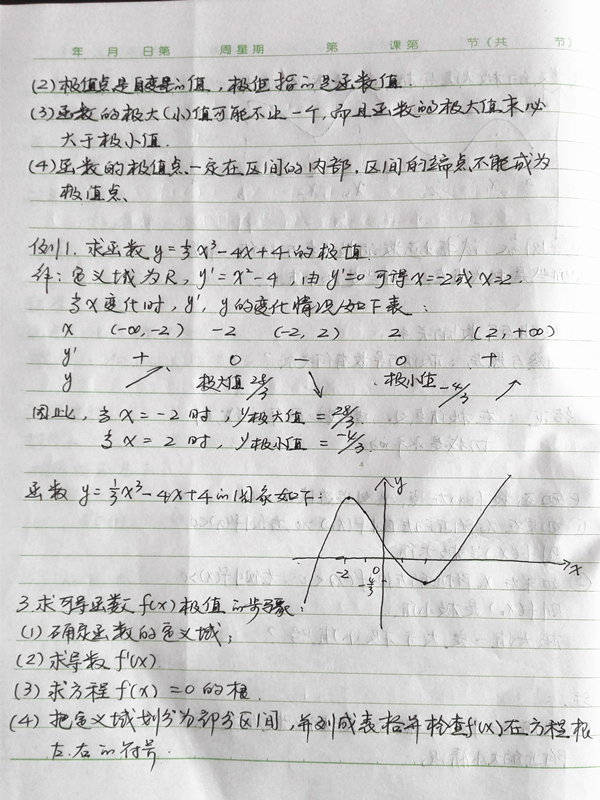 年 月 日第 周星期 第 课第 节(共 节)
(2)极值点是自变量的值,极值指的是函数值.
(3)函数的极大(小)值可能不止一个,而且函数的极大值未必
大于极小值.
(4)函数的极值点一定在区间的内部,区间的端点不能成为
极值点、
例1.求函数 y=⅓x³-4x+4 的极值
解:定义域为R, y'=x²-4,由y'=0可得x=-2或x=2.
当x变化时,y',y的变化情况如下表:
x (-∞,-2) -2 (-2,2) 2 (2,+∞)
y' + 0 - 0 +
y ↗ 极大值28/3 ↘ 极小值-4/3 ↗
因此,当x=-2时,y极大值=28/3.
当x=2时,y极小值=-4/3.
函数 y=⅓x³-4x+4的图象如下:
y
-2 0 x
-4/3
3.求可导函数f(x)极值的步骤:
(1)确定函数的定义域;
(2)求导数f'(x)
(3)求方程f'(x)=0的根.
(4)把定义域划分为部分区间,并列成表格并检查f'(x)在方程根
左右的符号.